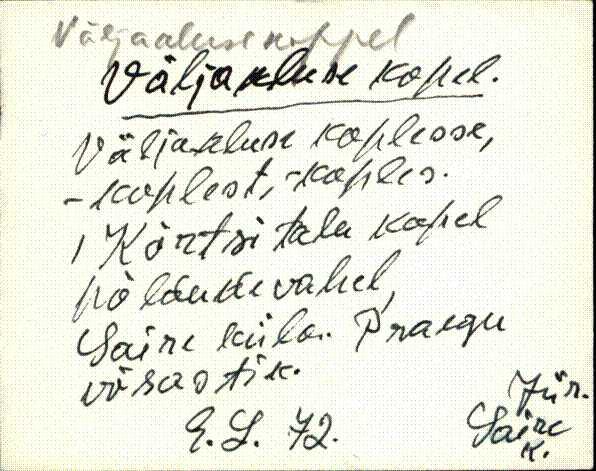 Väljaaluse koppel
Väljaaluse kopel.
Väljaaluse koplesse,
-koplest, -koples.
Kõrtsi talu kopel
põldude vahel,
Saire küla. Praegu
võsastik.
E. S. 72.
Jür.
Saire
k.